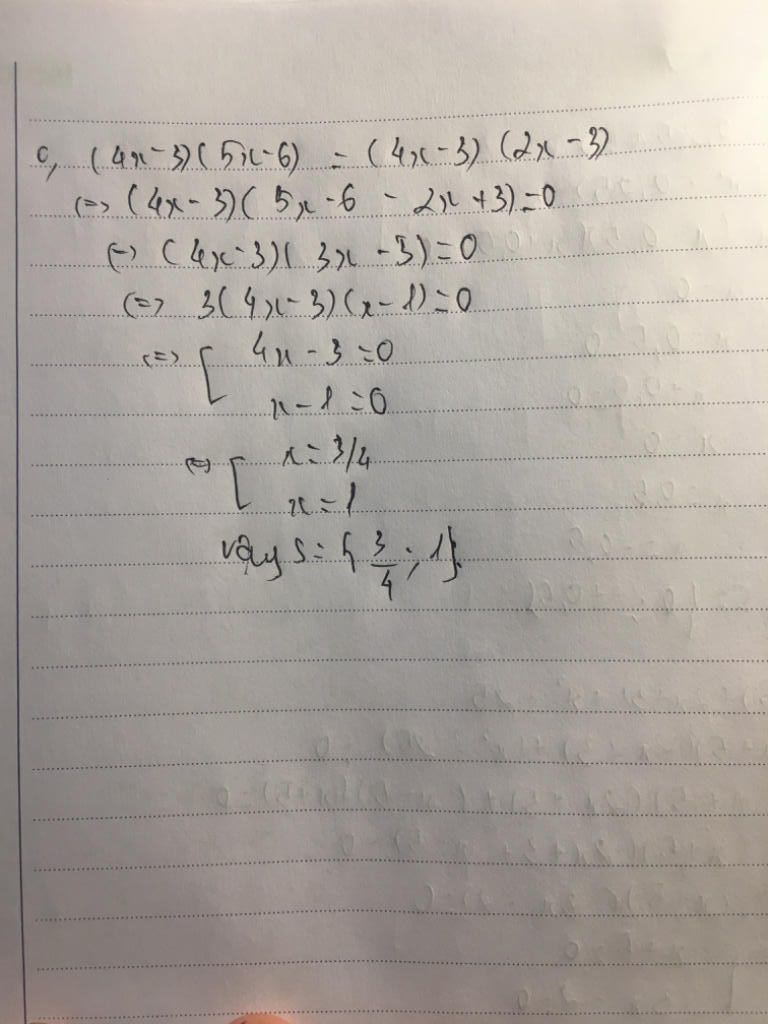 c, (4x-3)(5x-6) = (4x-3) (2x-3)
<=> (4x-3)(5x-6 - 2x+3)=0
<=> (4x-3)(3x-3)=0
<=> 3(4x-3)(x-1)=0
<=> [ 4x-3=0
x-1=0
<=> [ x=3/4
x=1
Vậy S={3/4; 1}.